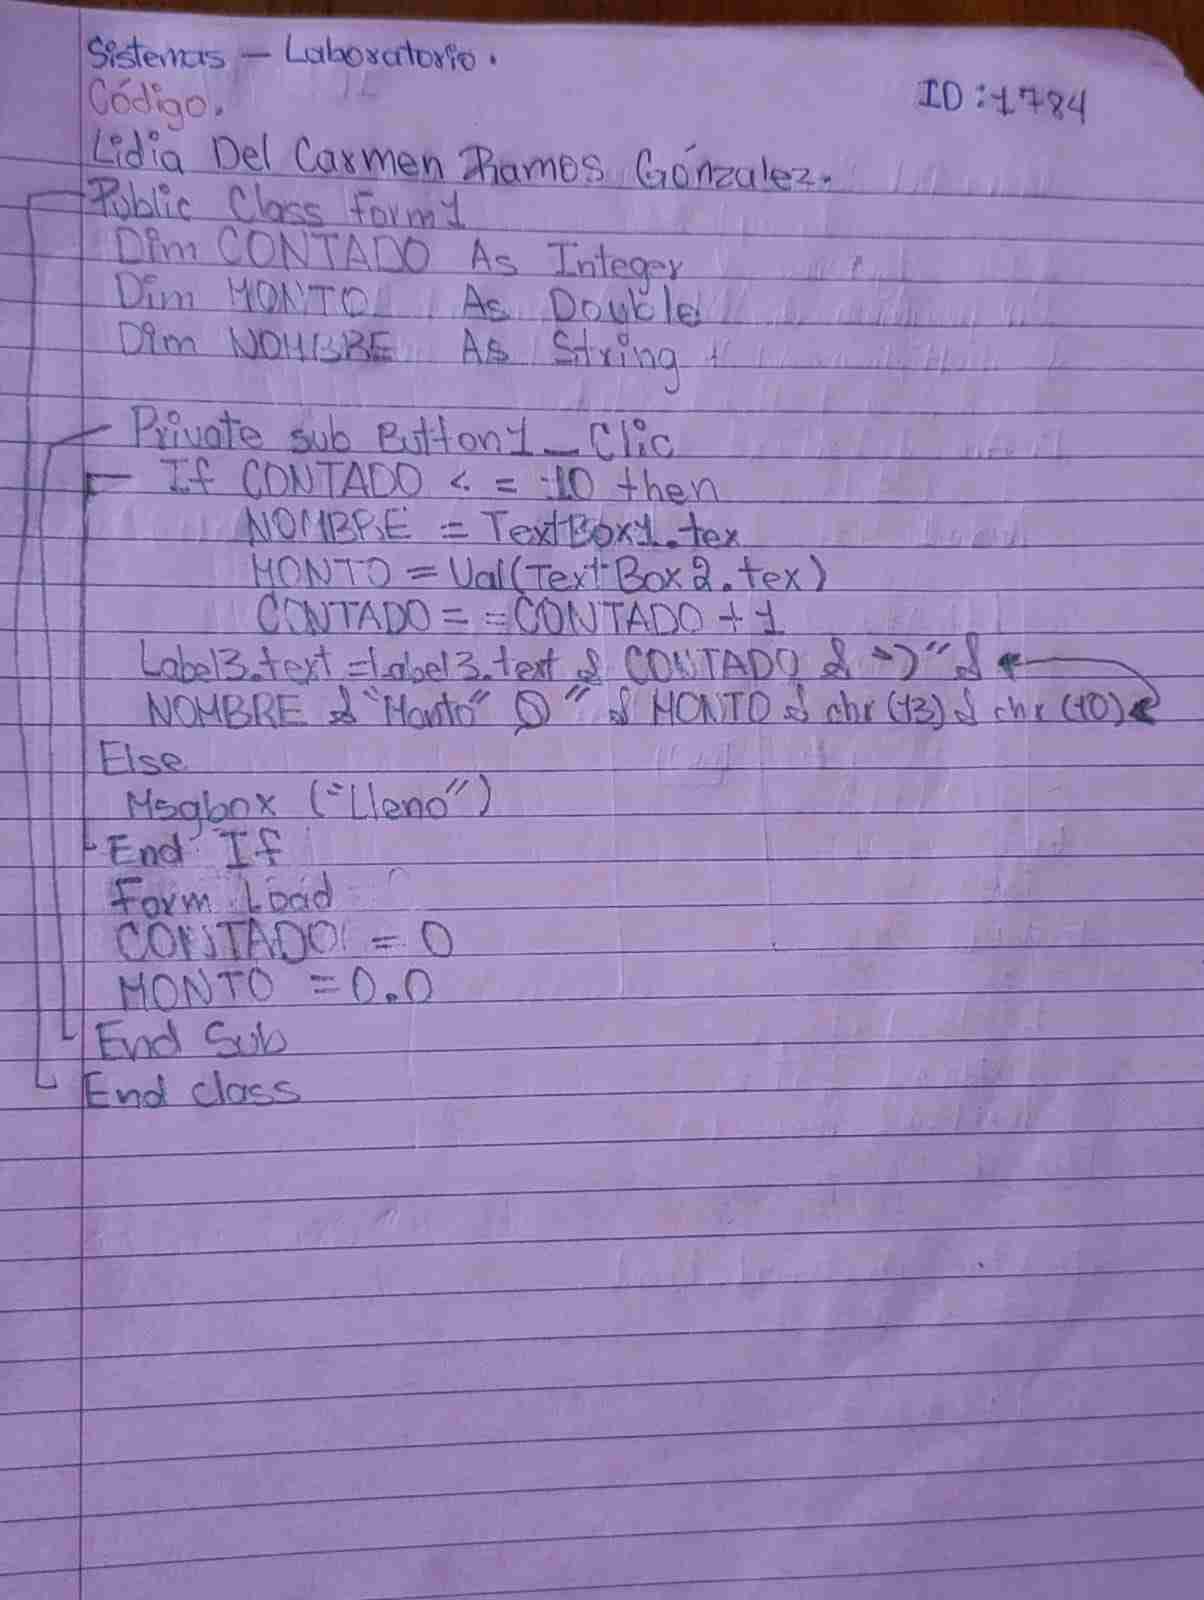 Sistemas - Laboratorio.
Código. ID:1784
Lidia Del Carmen Ramos Gónzalez.
Public Class Form1
Dim CONTADO As Integer
Dim MONTO As Double
Dim NOMBRE As String
Private sub Button1_Clic
If CONTADO <= 10 then
NOMBRE = TextBox1.tex
MONTO = Val(TextBox2.tex)
CONTADO = =CONTADO + 1
Label3.text = Label3.text & CONTADO & ")" &
NOMBRE & "Monto" Q" & MONTO & chr (13) & chr (10)
Else
Msgbox ("Lleno")
End If
Form Load
CONTADO = 0
MONTO = 0.0
End Sub
End class